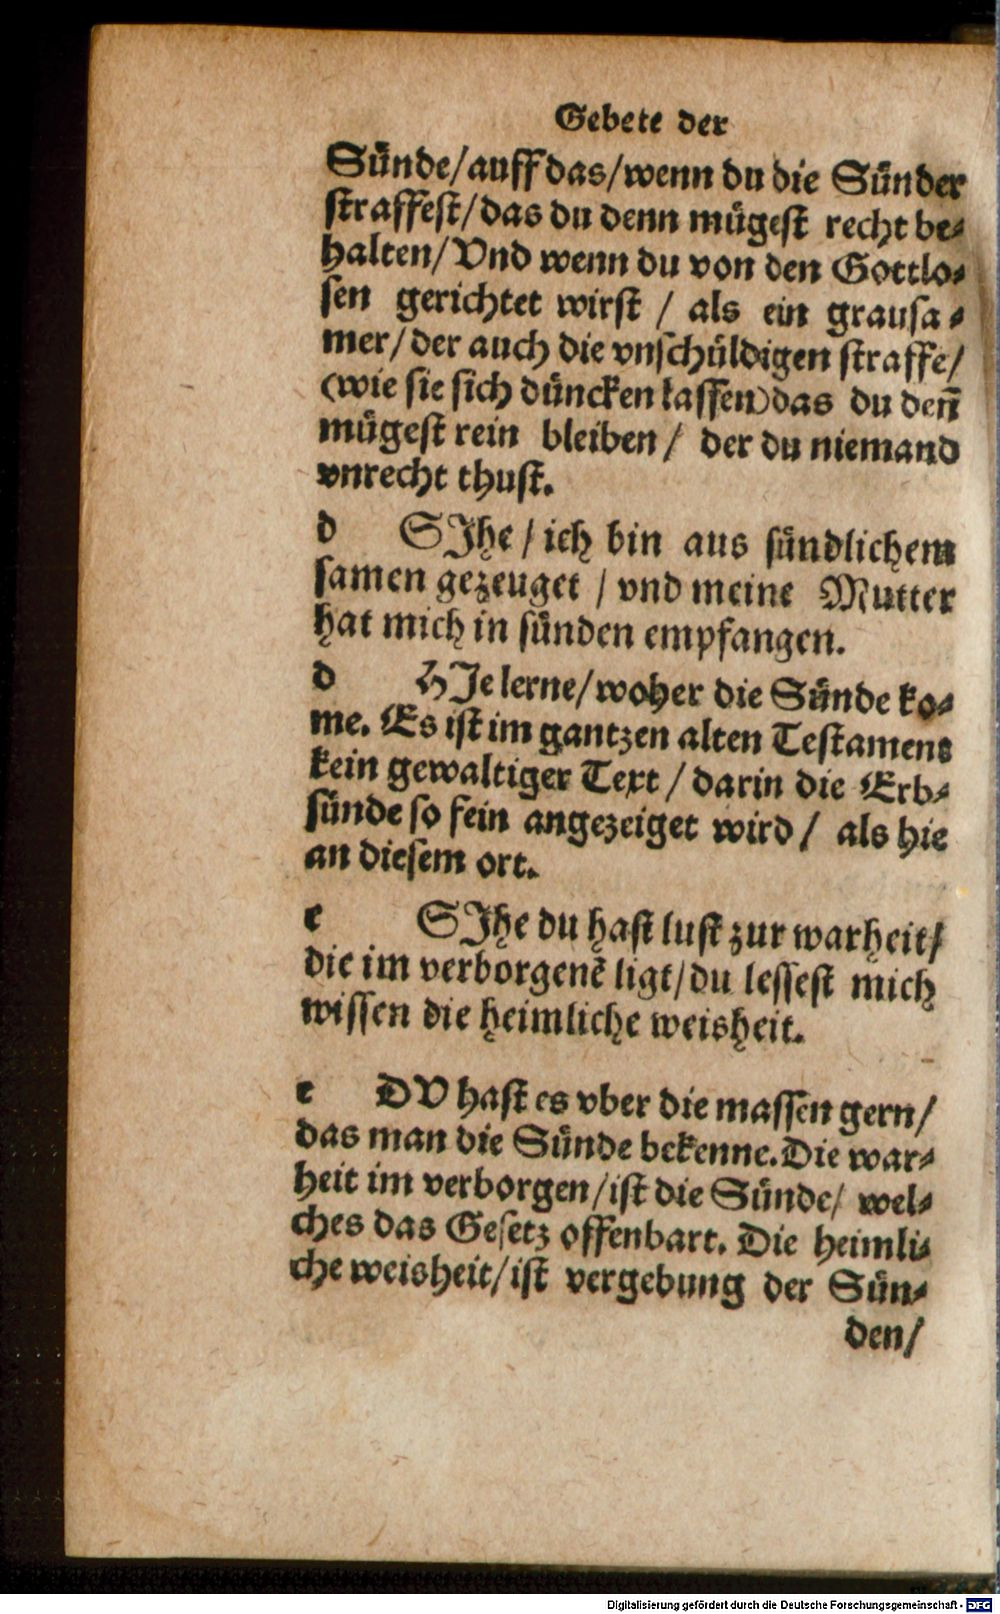 Gebete der
Sünde/auff das/wenn du die Sünder
straffest/das du denn mügest recht be-
halten/Vnd wenn du von den Gottlo-
sen gerichtet wirst / als ein grausa-
mer/der auch die vnschüldigen straffe/
(wie sie sich düncken lassen)das du deñ
mügest rein bleiben/ der du niemand
vnrecht thust.
d SIhe/ich bin aus sündlichem
samen gezeuget / vnd meine Mutter
hat mich in sünden empfangen.
d HIe lerne/woher die Sünde ko-
me. Es ist im gantzen alten Testament
kein gewaltiger Text / darin die Erb-
sünde so fein angezeiget wird/ als hie
an diesem ort.
e SIhe du hast lust zur warheit/
die im verborgenẽ ligt/du lessest mich
wissen die heimliche weisheit.
e DV hast es vber die massen gern/
das man die Sünde bekenne.Die war-
heit im verborgen/ist die Sünde/ wel-
ches das Gesetz offenbart. Die heimli-
che weisheit/ist vergebung der Sün-
den/
Digitalisierung gefördert durch die Deutsche Forschungsgemeinschaft - DFG